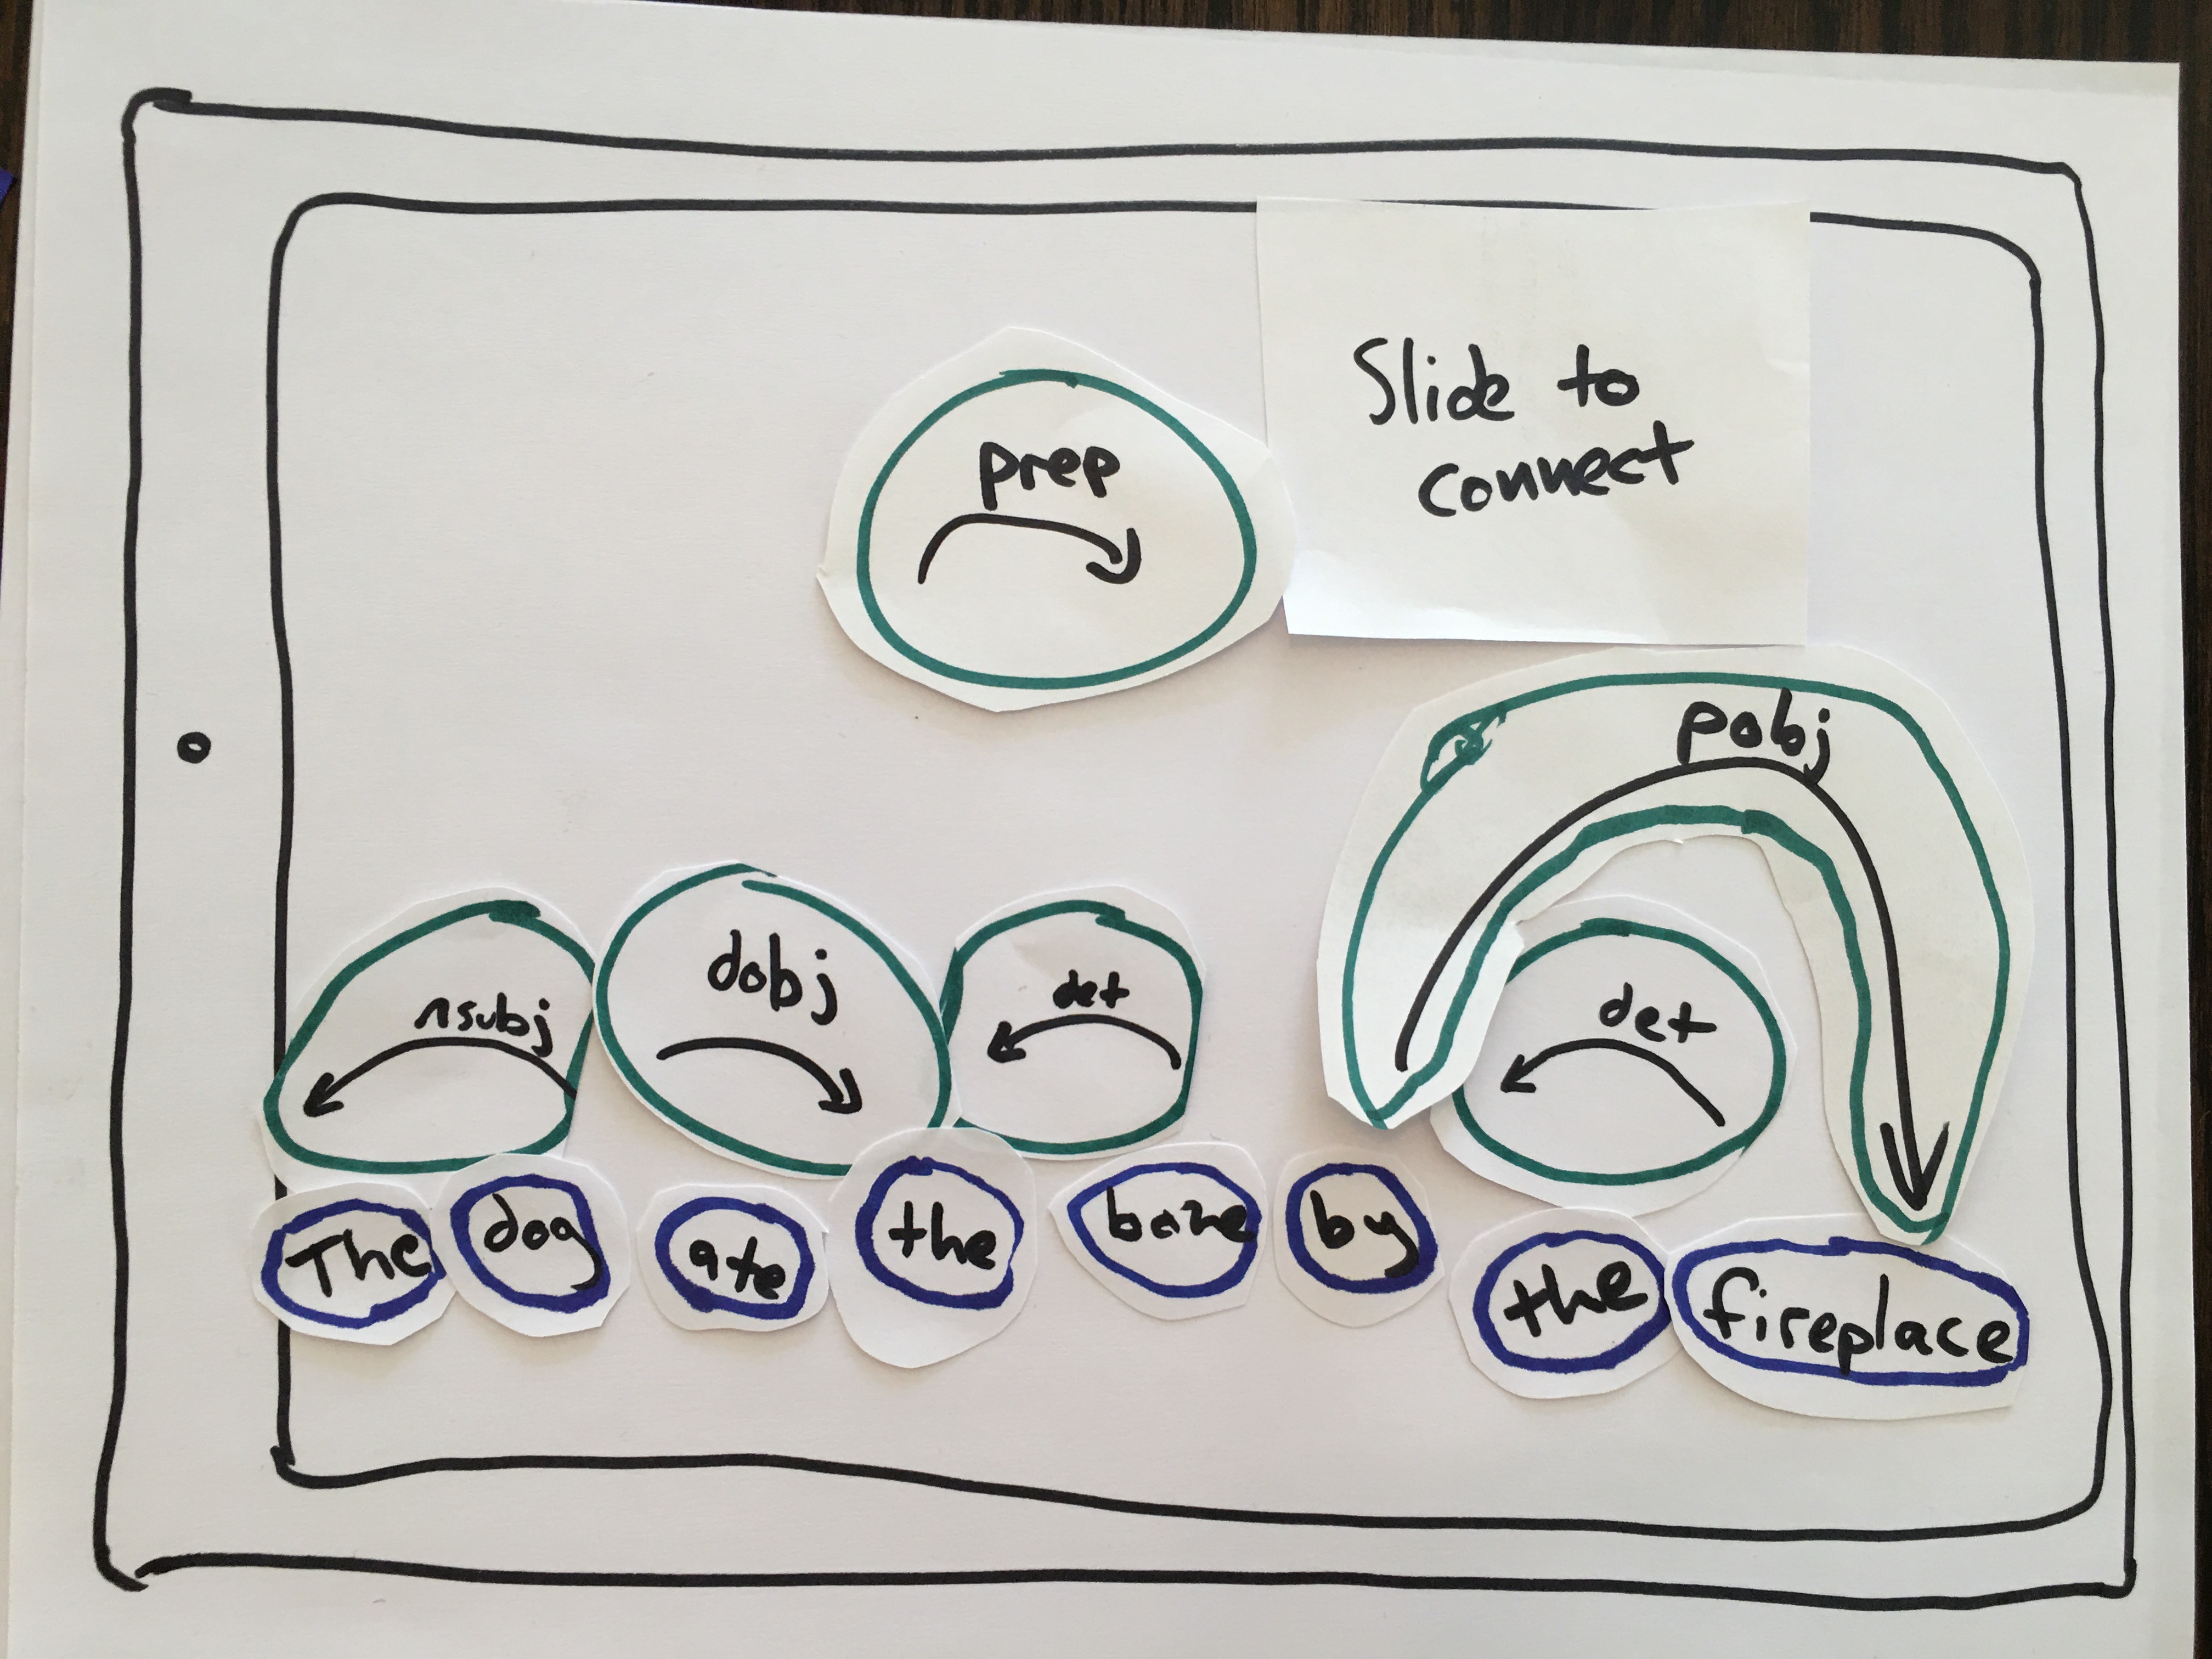 prep
Slide to
connect
pobj
nsubj
dobj
det
det
The dog ate the bone by the fireplace